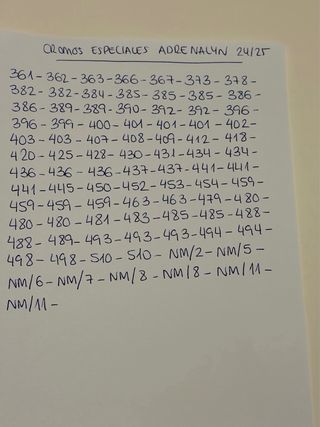 CROMOS ESPECIALES ADRENALYN 24/25
361 - 362 - 363 - 366 - 367 - 373 - 378 -
382 - 382 - 384 - 385 - 385 - 385 - 386 -
386 - 389 - 389 - 390 - 392 - 392 - 396 -
396 - 399 - 400 - 401 - 401 - 401 - 402 -
403 - 403 - 407 - 408 - 409 - 412 - 418 -
420 - 425 - 428 - 430 - 431 - 434 - 434 -
436 - 436 - 436 - 437 - 437 - 441 - 441 -
441 - 445 - 450 - 452 - 453 - 454 - 459 -
459 - 459 - 459 - 463 - 463 - 479 - 480 -
480 - 480 - 481 - 483 - 485 - 485 - 488 -
488 - 489 - 493 - 493 - 493 - 494 - 494 -
498 - 498 - 510 - 510 - NM/2 - NM/5 -
NM/6 - NM/7 - NM/8 - NM/8 - NM/11 -
NM/11 -